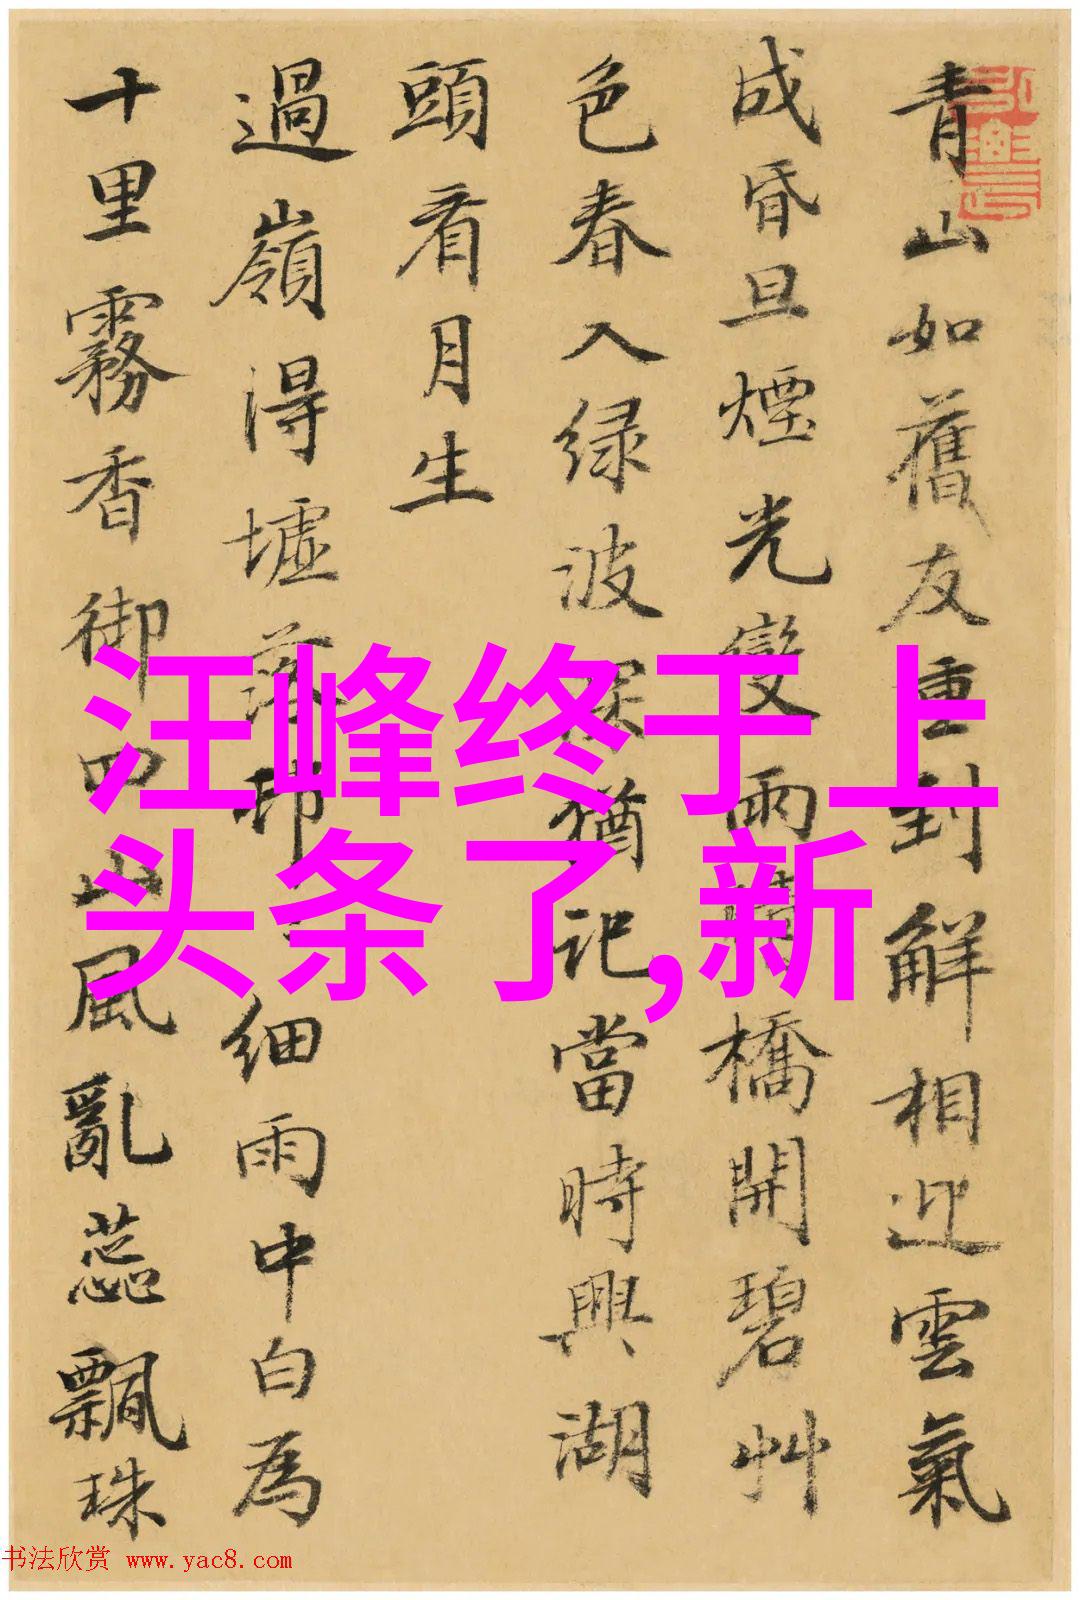 青山如舊友重到解相迎雲氣
成昏旦煙光變雨晴橋開碧艸
色春入緑波深猶記當時興湖
頭看月生
過嶺得墟落邨細雨中白為
十里霧香御四山風亂蕊飄珠
汪峰终于上
头条了,新
书法欣赏 www.yac8.com